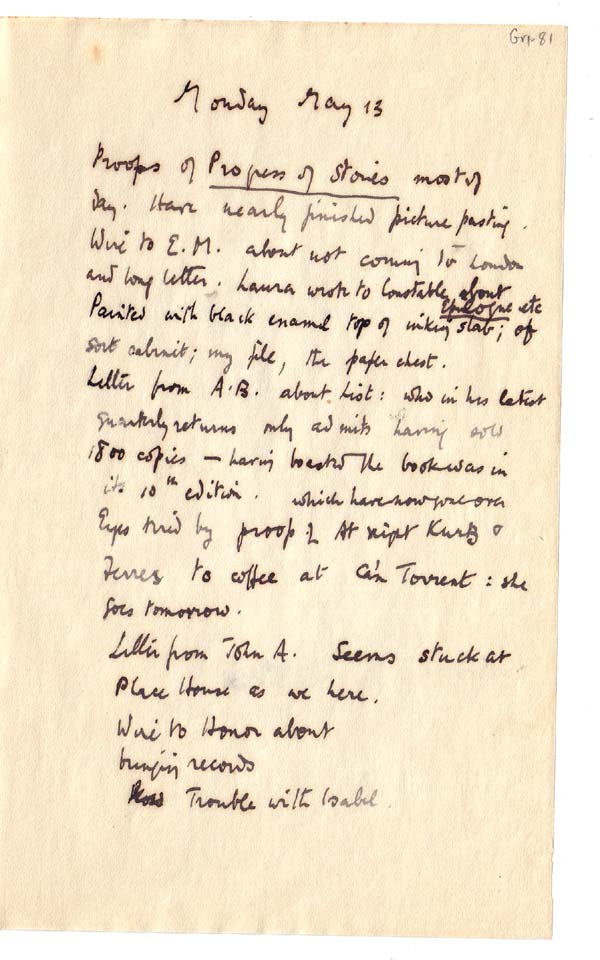 Grv-81
Monday May 13
Proofs of Progress of Stories most of
day. Have nearly finished picture pasting.
Wire to E.M. about not coming to London
and long letter. Laura wrote to Constable about
Epilogue etc
Painted with black enamel top of inking slab; of
sort cabinet; my file, the paper chest.
Letter from A.B. about List: who in his latest
quarterly returns only admits having sold
1800 copies — having boasted the book was in
its 10th edition. which have now gone over
Eyes tired by proof At night Kurtz &
to coffee at Ca'n Torrent: she
goes tomorrow.
Letter from John A. Seems stuck at
Place House as we here.
Wire to Honor about
bringing records
Trouble with Isabel.